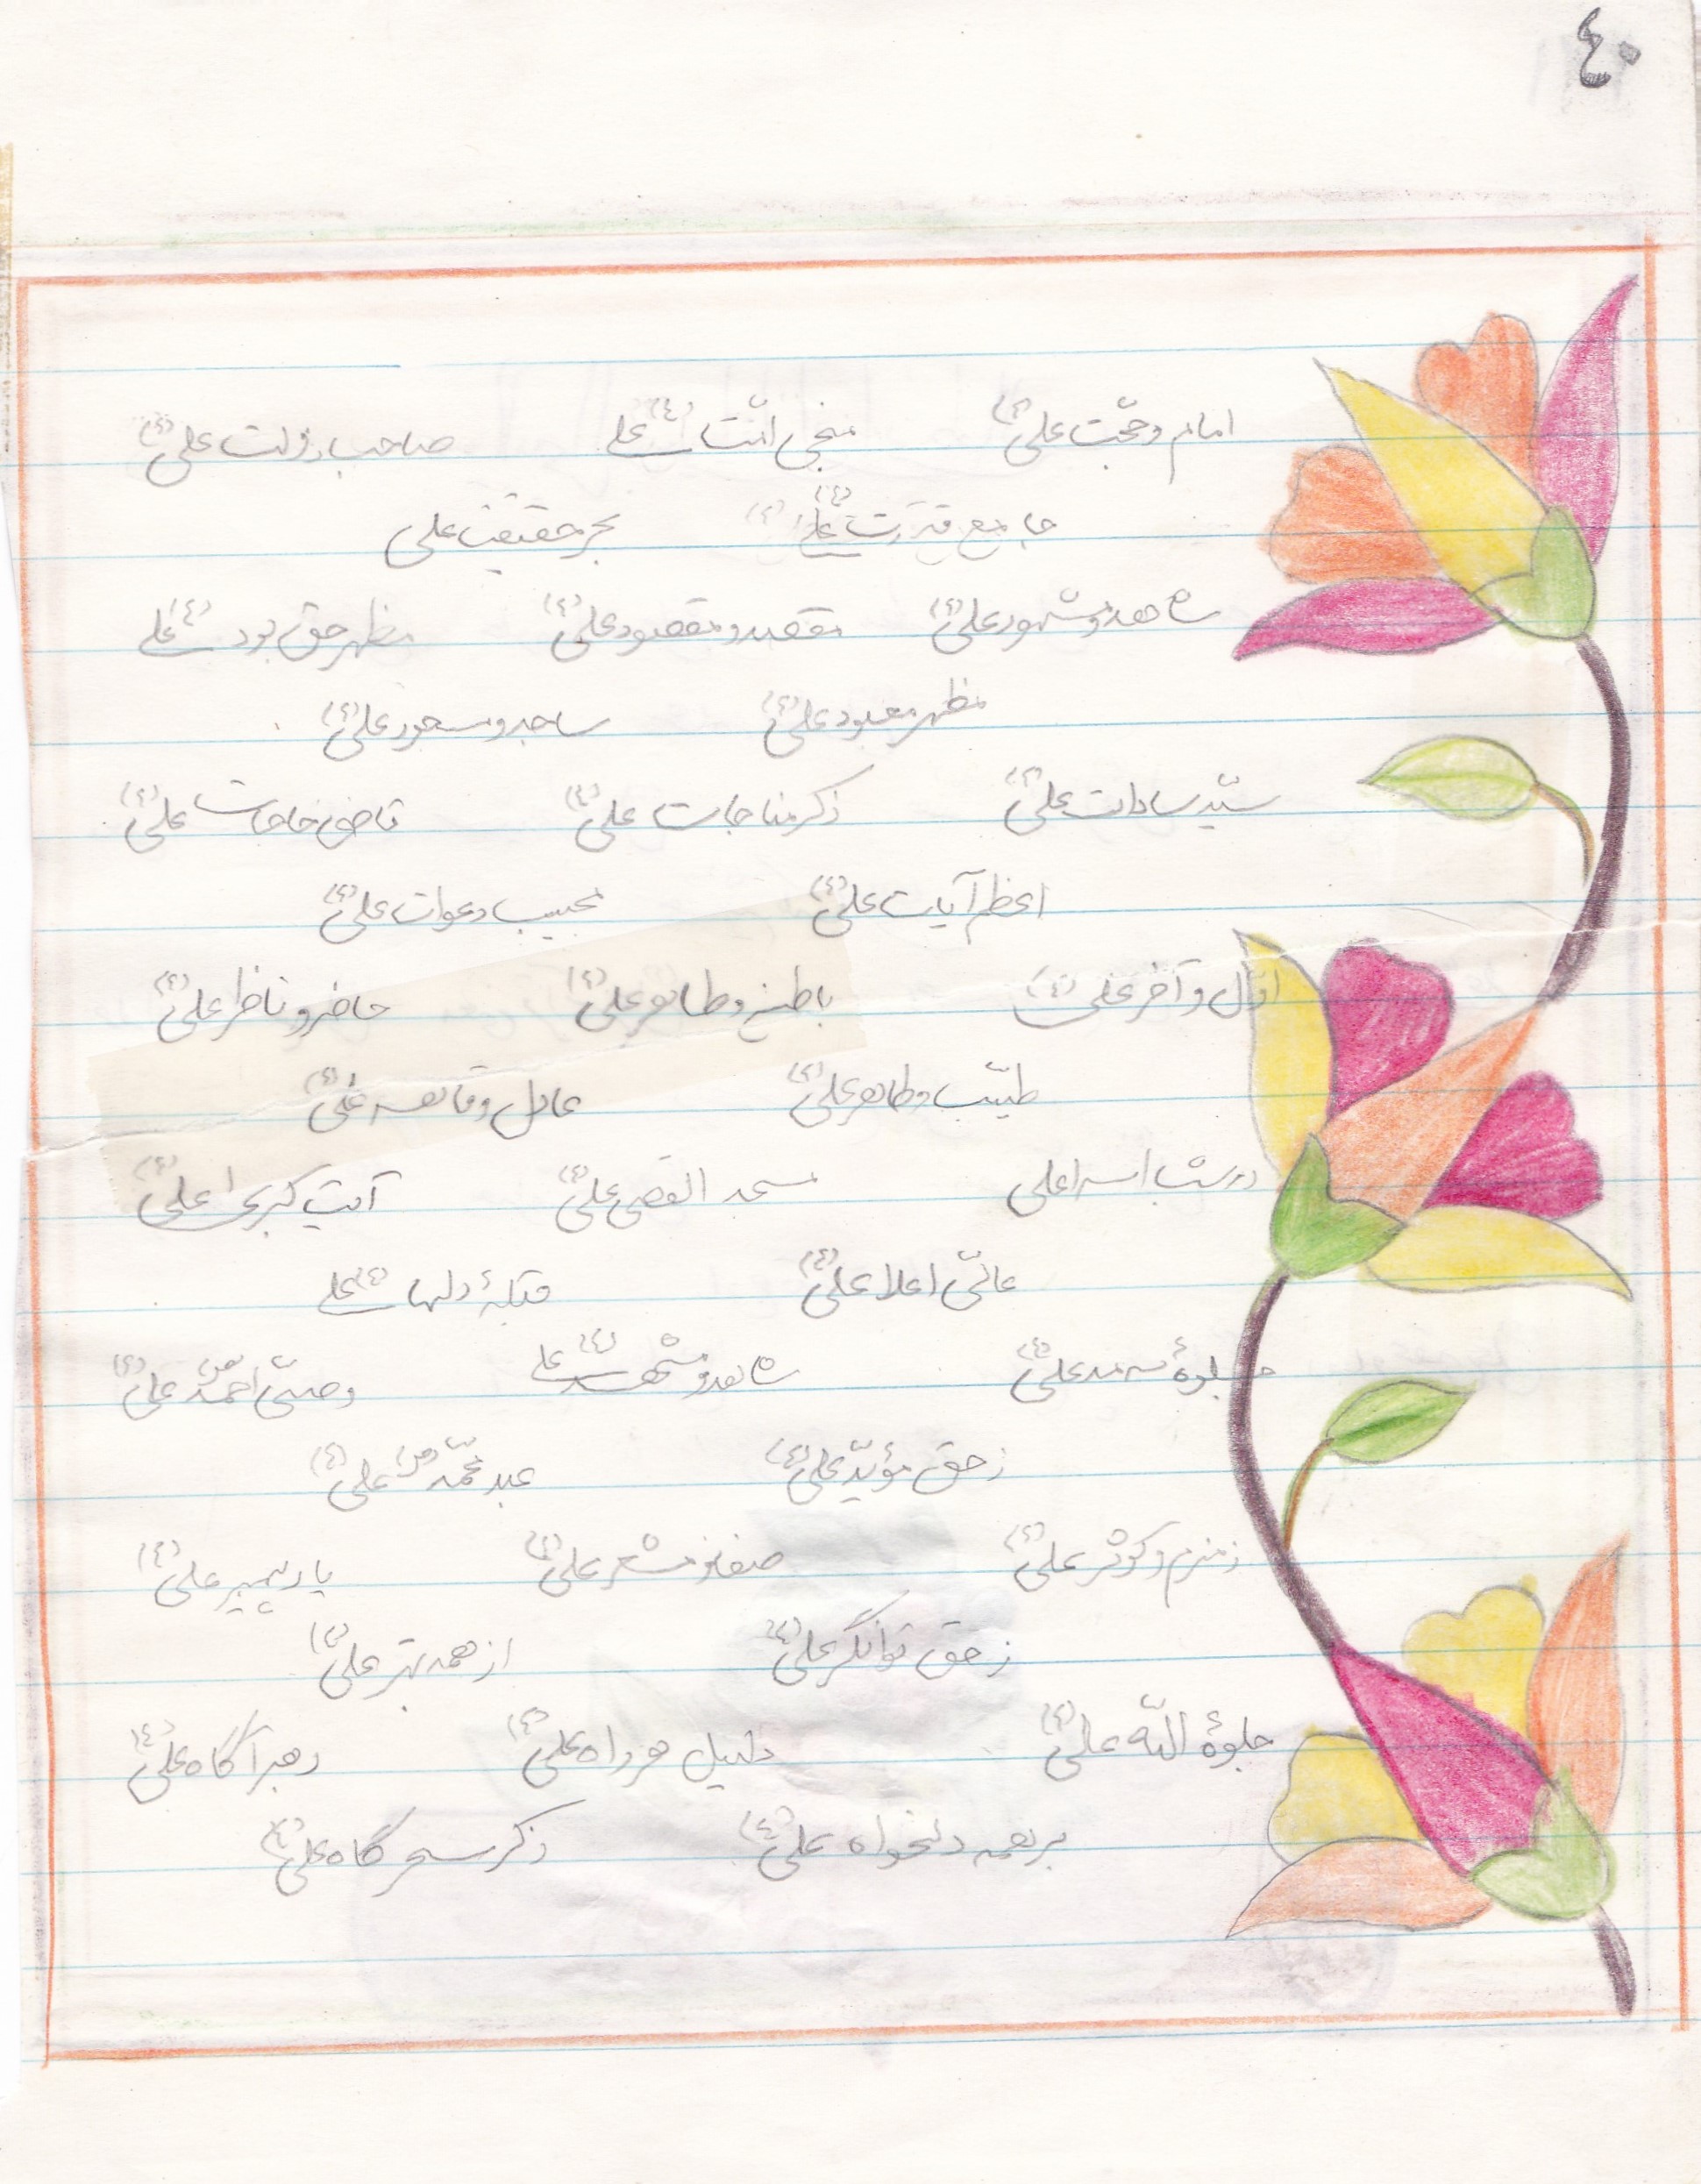 ٤٠
امام و حجّت علی (ع) منجی امّت علی (ع) صاحب دولت علی (ع)
جامع قدرت علی (ع) بحر حقیقت علی
شاهد و مشهود علی (ع) مقصد و مقصود علی (ع) مظهر حق بود علی (ع)
مظهر معبود علی (ع) ساجد و مسجود علی (ع)
سیّد سادات علی (ع) ذکر مناجات علی (ع) قاضی حاجات علی (ع)
اعظم آیات علی (ع) مجیب دعوات علی (ع)
اوّل و آخر علی (ع) باطن و ظاهر علی (ع) حاضر و ناظر علی (ع)
طیّب و طاهر علی (ع) عادل و قاهر علی (ع)
در شب اسرا علی مسجد القصی علی (ع) آیت کبری علی (ع)
عالیّ اعلا علی (ع) قبلهٔ دلها علی (ع)
جلوهٔ سرمد علی (ع) شاهد و مشهد علی (ع) وصیّ احمد (ص) علی (ع)
ز حق مؤیّد علی (ع) عبد محمّد (ص) علی (ع)
زمزم و کوثر علی (ع) صفا و مشعر علی (ع) یار پیمبر علی (ع)
ز حق توانگر علی (ع) از همه بهتر علی (ع)
جلوهٔ اللّه علی (ع) دلیل هر راه علی (ع) رهبر آگاه علی (ع)
بر همه دلخواه علی (ع) ذکر سحرگاه علی (ع)